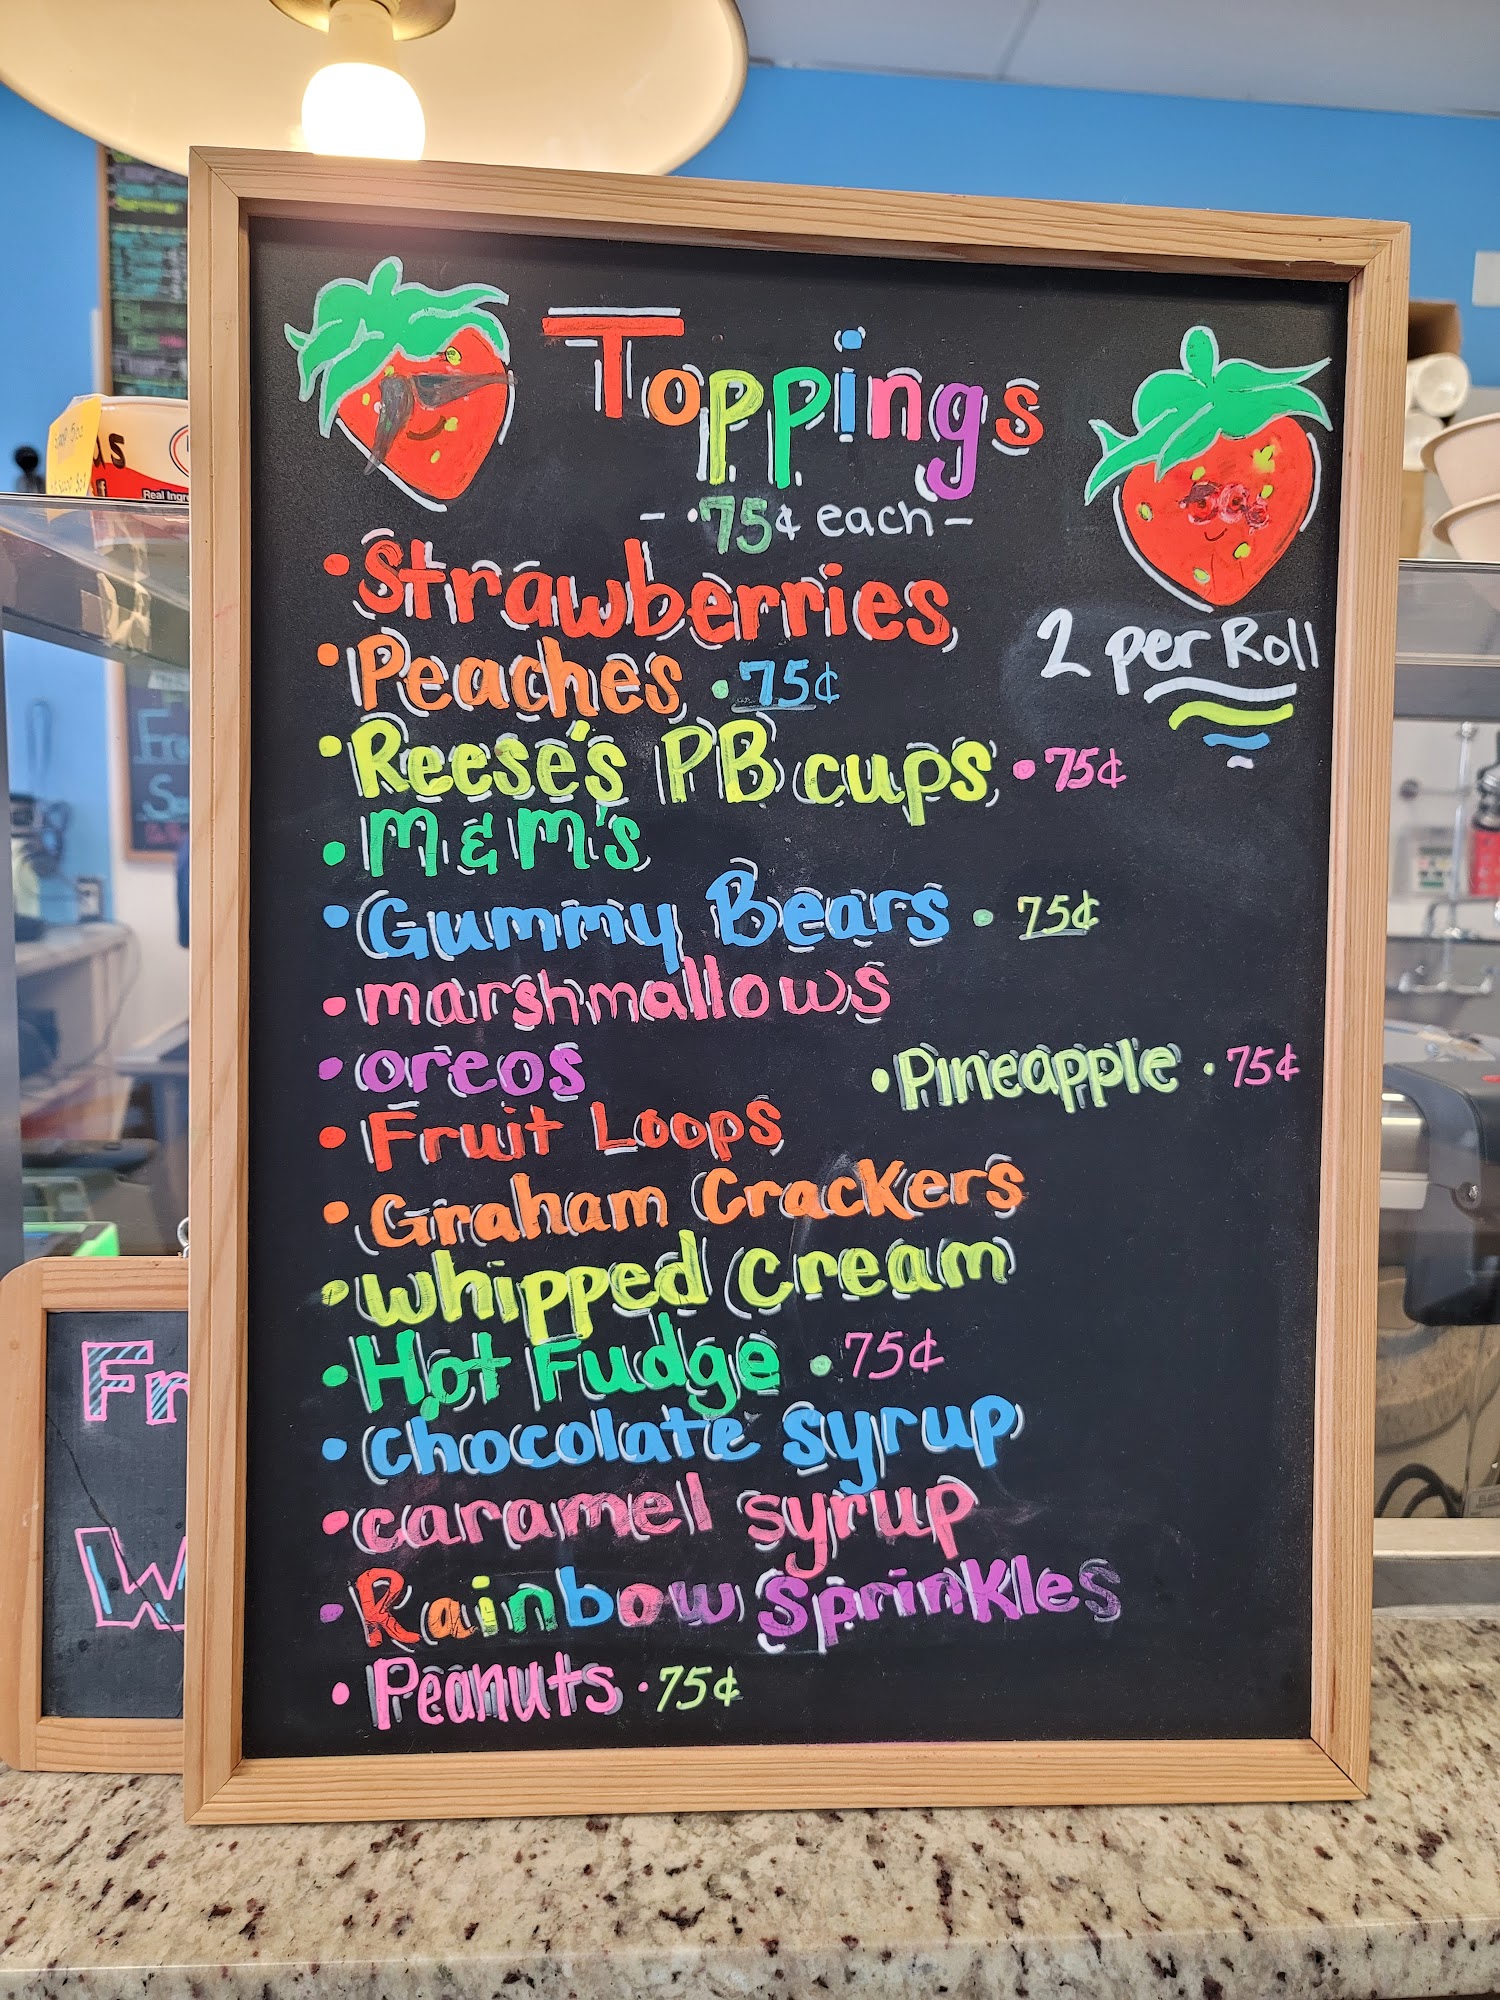 Toppings
- .75¢ each -
• Strawberries
• Peaches • 75¢
2 per Roll
• Reese's PB cups • 75¢
• M & M's
• Gummy Bears • 75¢
• marshmallows
• oreos
• Pineapple • 75¢
• Fruit Loops
• Graham Crackers
• whipped cream
• Hot Fudge • 75¢
• chocolate syrup
• caramel syrup
• Rainbow Sprinkles
• Peanuts • 75¢
Real Ingr
Fr
W